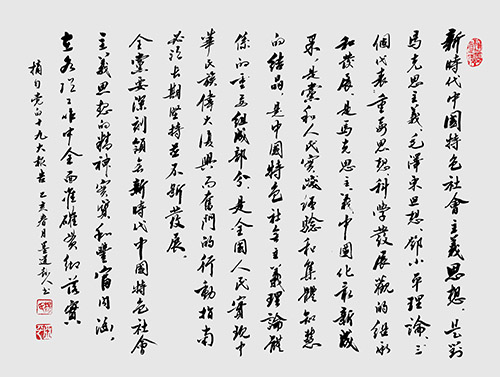 新時代中國特色社會主義思想，是對
馬克思主義、毛澤東思想、鄧小平理論、三
個代表重要思想、科學發展觀的继承
和發展，是馬克思主義中國化最新成
果，是黨和人民實踐經驗和集體智慧
的結晶，是中國特色社會主義理論體
係的重要組成部分，是全國人民實現中
華民族偉大復興而奮鬥的行動指南
必須長期堅持並不斷發展。
全黨要深刻領會新時代中國特色社會
主義思想的精神實質和豐富内涵，
在各項工作中全面准確貫徹落實
摘自党的十九大報告 己亥春月